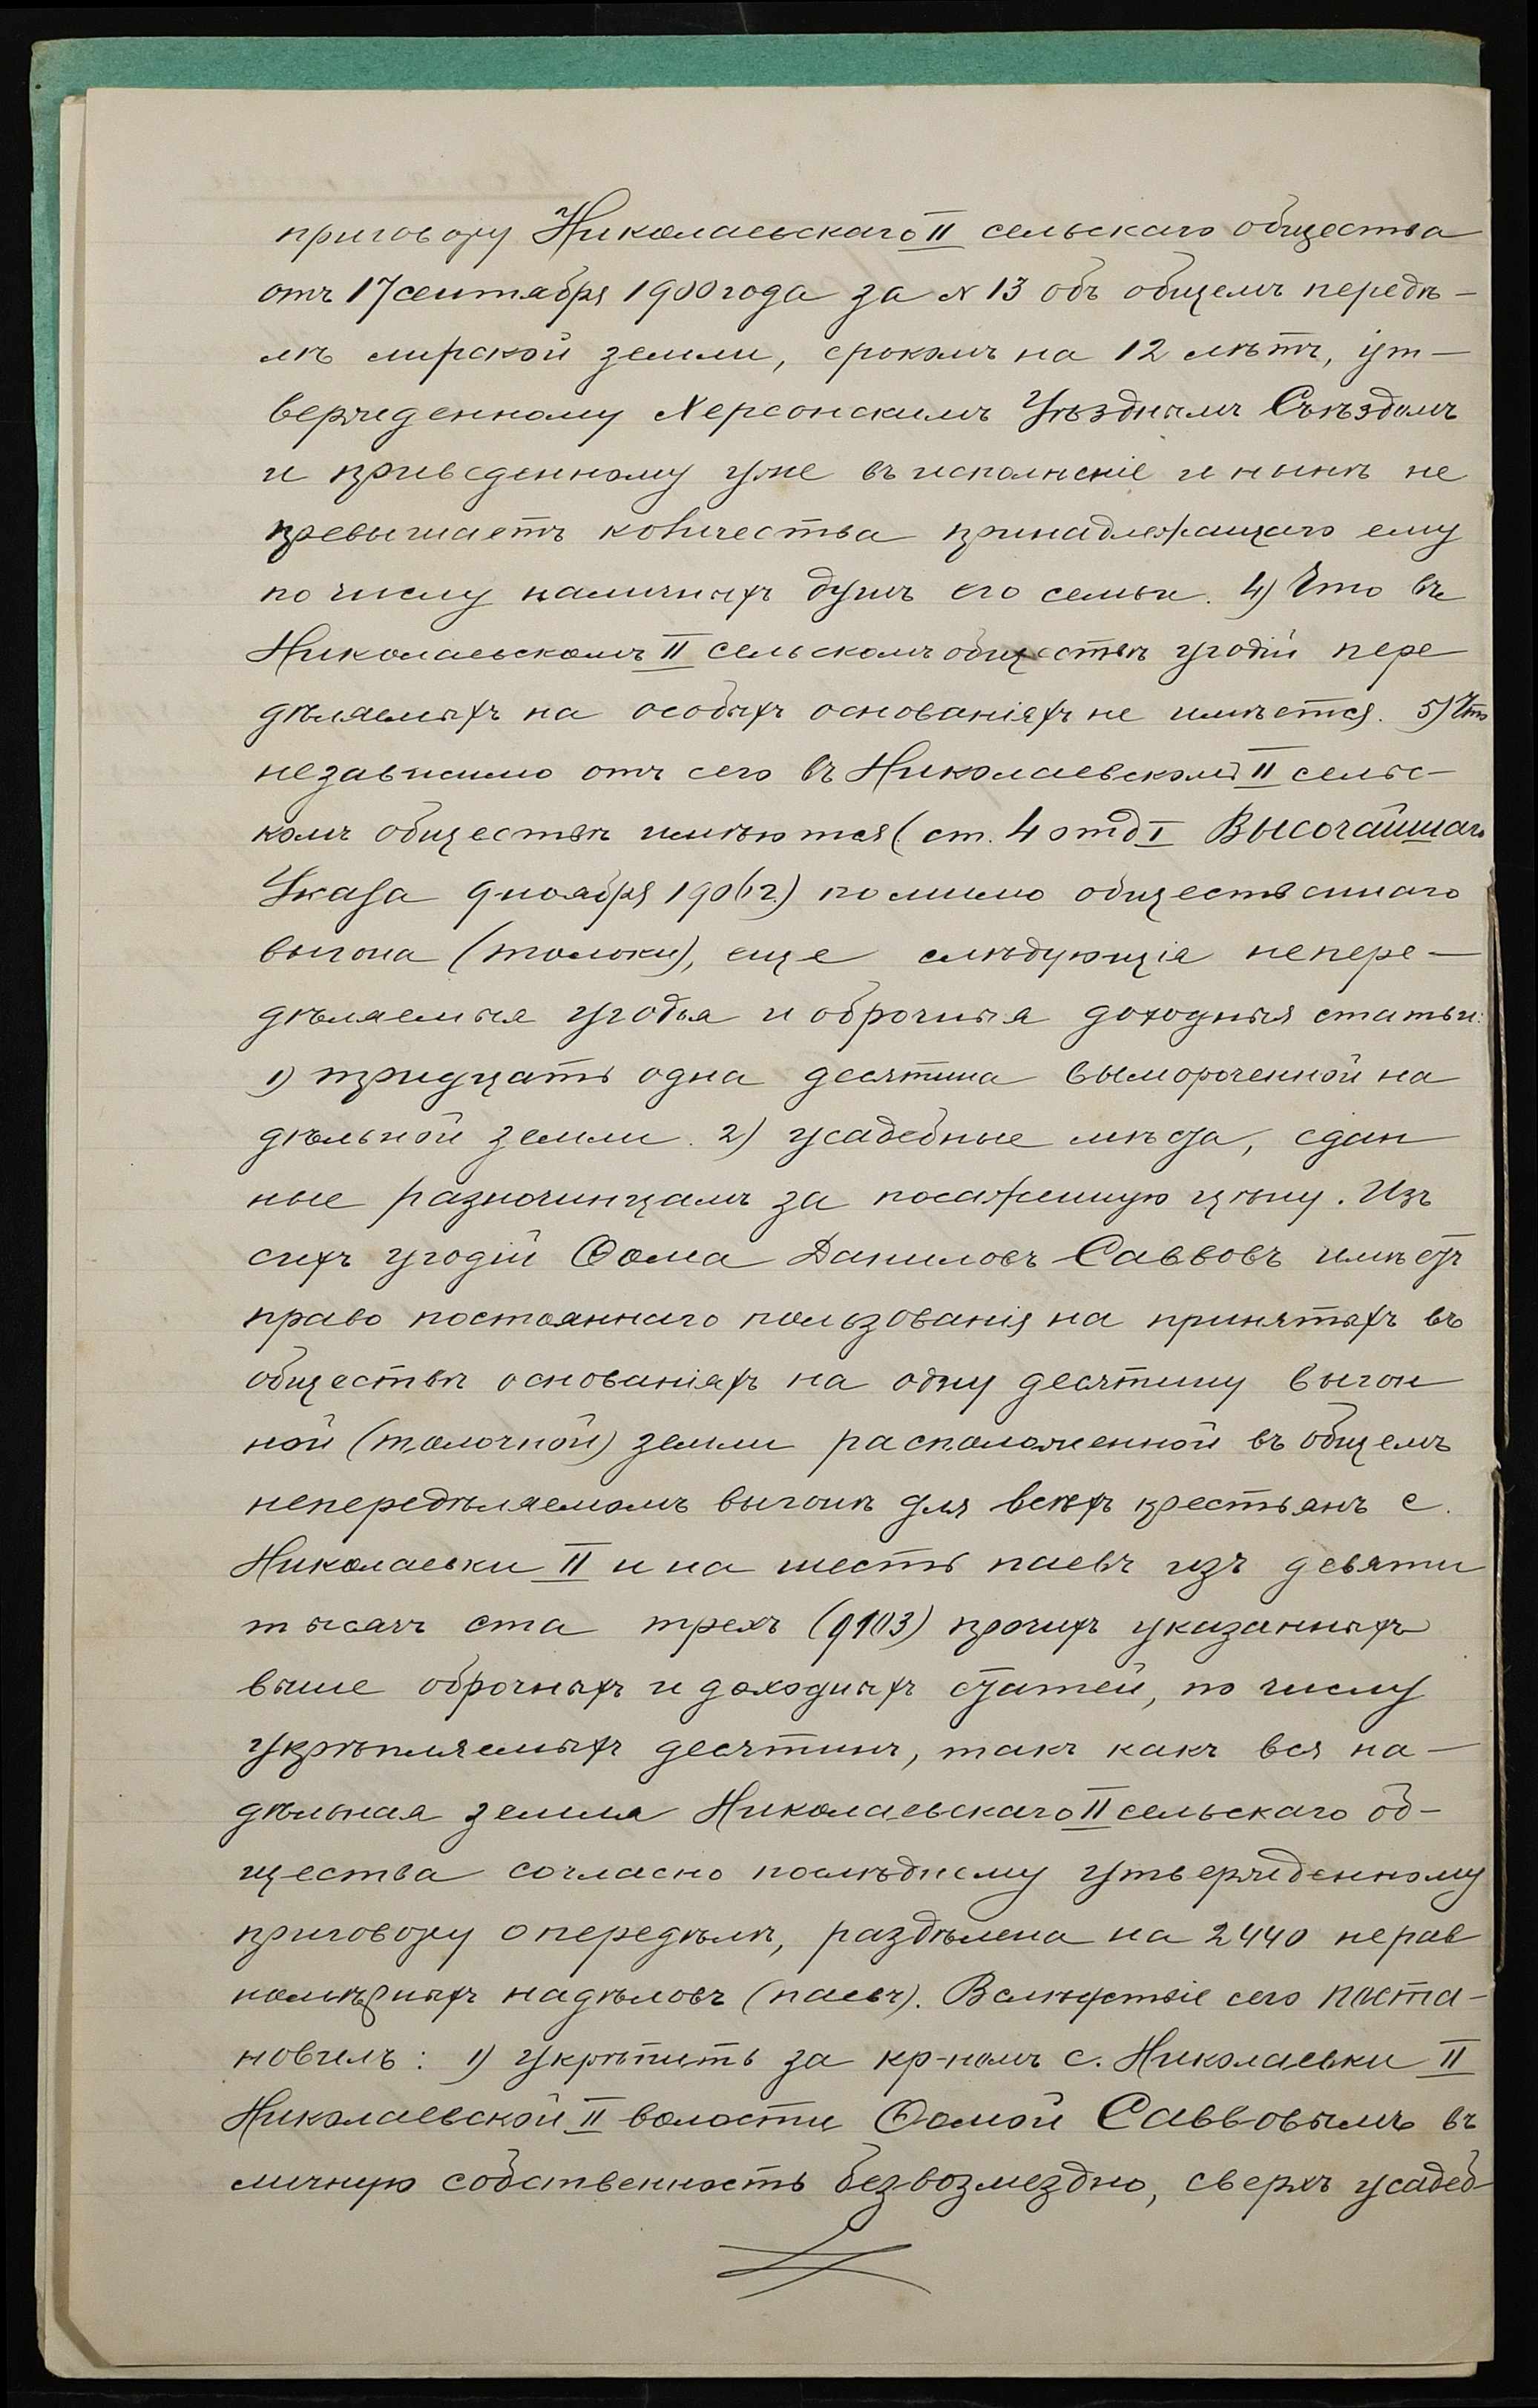 приговору Николаевскаго II сельскаго общества
отъ 17 сентября 1900 года за № 13 объ общемъ передѣ-
лѣ мирской земли, срокомъ на 12 лѣтъ, ут-
вержденному Херсонскимъ Уѣзднымъ Съѣздомъ
и приведенному уже въ исполненіе и нынѣ не
превышаетъ количества принадлежащаго ему
по числу наличныхъ душъ его семьи. 4) Что въ
Николаевскомъ II сельскомъ обществѣ угодій пере
дѣляемыхъ на особыхъ основаніяхъ не имѣется. 5) Что
независимо отъ сего въ Николаевскомъ II сельс-
комъ обществѣ имѣются (ст. 4 отд I Высочайшаго
Указа 9 ноября 1906 г.) помимо общественнаго
выгона (толоки), еще слѣдующія непере-
дѣляемыя угодья и оброчныя доходныя статьи:
1) тридцать одна десятина выморочной на
дѣльной земли. 2) усадебные мѣста, сдан
ные разночинцамъ за посаженную цѣну. Изъ
сихъ угодій Ѳома Даниловъ Саввовъ имѣетъ
право постояннаго пользованія на принятыхъ въ
обществѣ основаніяхъ на одну десятину выгон
ной (толочной) земли расположенной въ общемъ
непередѣляемомъ выгонѣ для всѣхъ крестьянъ с.
Николаевки II и на шесть паевъ изъ девяти
тысячъ ста трехъ (9103) прочихъ указанныхъ
выше оброчныхъ и доходныхъ статей, по числу
укрѣпляемыхъ десятинъ, такъ какъ вся на-
дѣльная земля Николаевскаго II сельскаго об-
щества согласно послѣднему утвержденному
приговору о передѣлѣ, раздѣлена на 2440 нерав
номѣрныхъ надѣловъ (паевъ). Вслѣдствіе сего поста-
новилъ: 1) укрѣпить за кр-номъ с. Николаевки II
Николаевской II волости Ѳомой Саввовымъ въ
личную собственность безвозмездно, сверхъ усадеб-